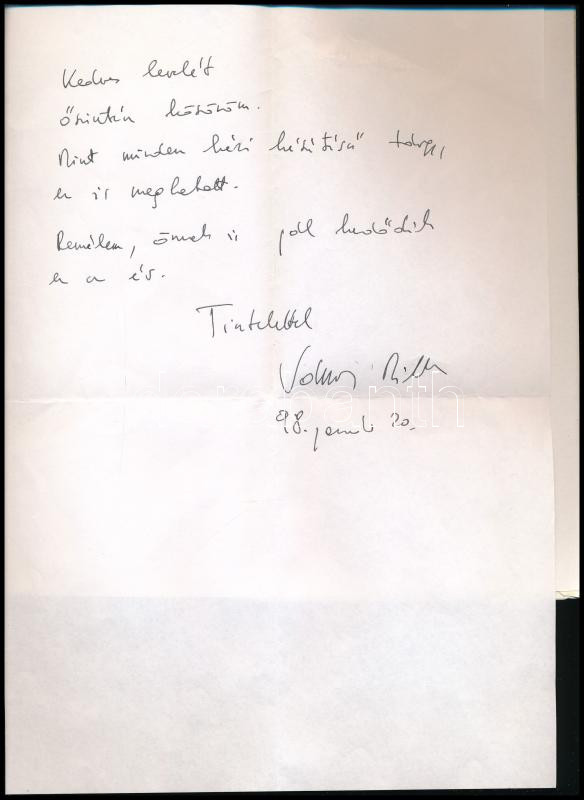 Kedves levelét
őszintén köszönöm.
Mint minden kézi készítésű tárgy,
ez is meghatott.
Remélem, önnek is jól kezdődik
ez az év.
Tisztelettel
98. január 20.